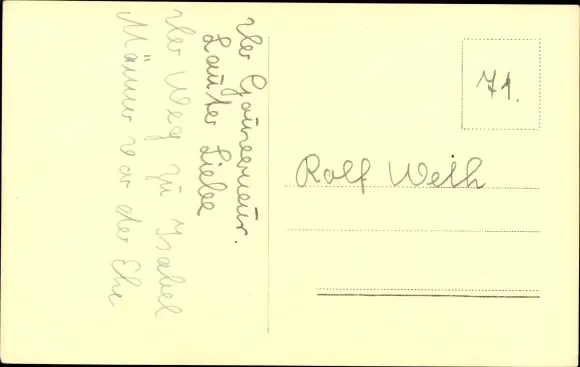 Der Gouverneur.
Lauter Liebe
Der Weg zu Isabel
Männer vor der Ehe
71.
Rolf Weih